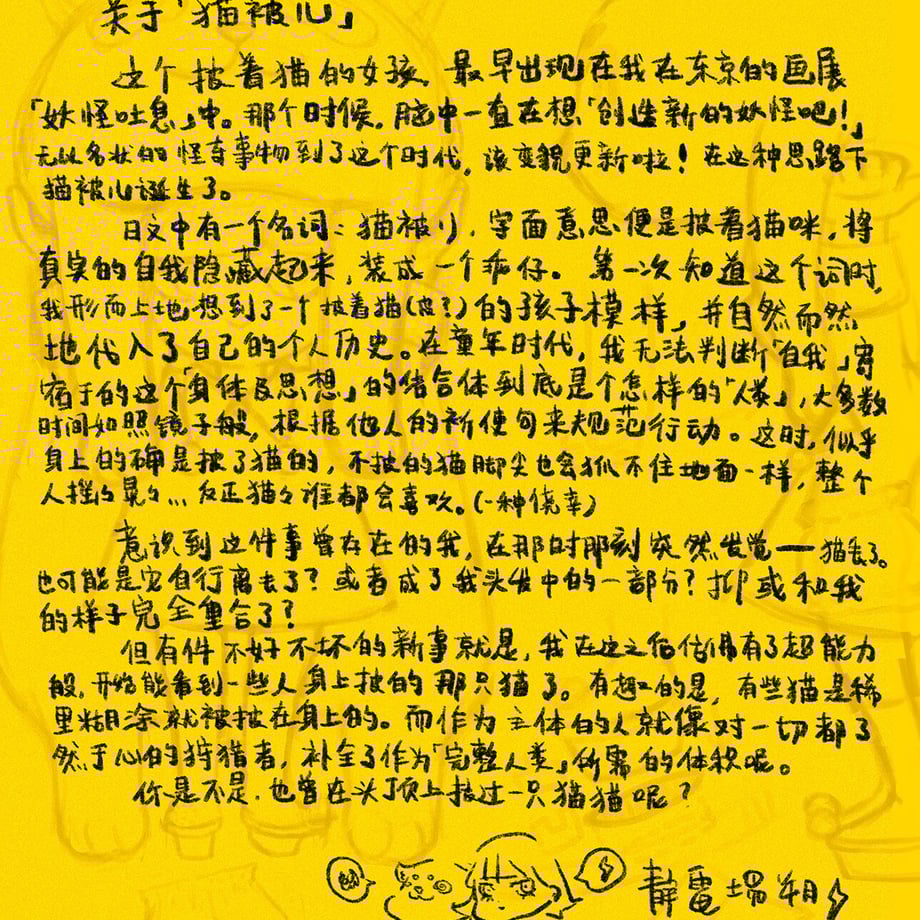 关于「猫被儿」
这个披着猫的女孩，最早出现在我在东京的画展
「妖怪吐息」中。那个时候，脑中一直在想「创造新的妖怪吧！」
无以名状的怪奇事物到了这个时代，该变貌更新啦！在这种思路下
猫被儿诞生了。
日文中有一个名词：猫被り，字面意思便是披着猫咪，将
真实的自我隐藏起来，装成一个乖仔。第一次知道这个词时，
我形而上地想到了一个披着猫(皮?)的孩子模样，并自然而然
地代入了自己的个人历史。在童年时代，我无法判断「自我」寄
宿于的这个「身体及思想」的结合体到底是个怎样的「人类」，大多数
时间如照镜子般，根据他人的祈使句来规范行动。这时，似乎
身上的确是披了猫的，不披的猫脚尖也会抓不住地面一样，整个
人摇々晃々… 反正猫々谁都会喜欢。(一种侥幸)
意识到这件事曾存在的我，在那时那刻突然发觉——猫丢了。
也可能是它自行离去了？或者成了我头发中的一部分？抑或和我
的样子完全重合了？
但有件不好不坏的新事就是，我在这之后彷佛有了超能力
般，开始能看到一些人身上披的那只猫了。有趣的是，有些猫是稀
里糊涂就被披在身上的。而作为主体的人就像对一切都了
然于心的狩猎者，补全了作为「完整人类」所需的体积呢。
你是不是，也曾在头顶上披过一只猫猫呢？
静电场朔